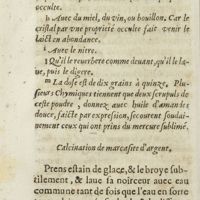 occulte.
h Avec du miel, du vin, ou bouillon. Car le
cristal par vne proprieté occulte fait venir le
laict en abondance.
i Avec le nitre.
l Qu'il le reuerbere comme deuant, qu'il le la-
ue, puis le digere.
m La dose est de dix grains à quinze. Plu-
sieurs Chymiques tiennent que deux scrupuls de
ceste poudre, donnez avec huile d'amandes
douce, faicte par expression, secourent soudai-
nement ceux qui ont prins du mercure sublimé.
Calcination de marcasite d'argent.
Prens estain de glace, & le broye sub-
tilement, & laue sa noirceur auec eau
commune tant de fois que l'eau en sorte